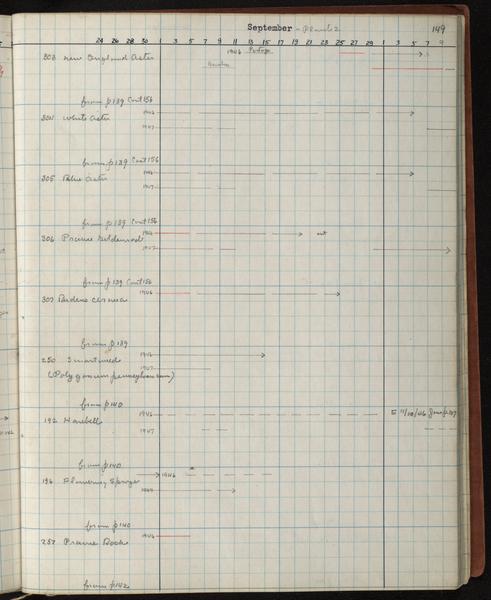 September - Plants 2
149
24 26 28 30 1 3 5 7 9 11 13 15 17 19 21 23 25 27 29 1 3 5 7 9
303 New England Aster 1946
from p139 Cont 156
304 White Aster 1946
1947
from p139 Cont 156
305 Blue Aster 1946
1947
from p139 Cont 156
306 Prairie Goldenrod 1946 cut
1947
from p139 Cont 156
307 Bidens cernua 1946
from p139
250 Smartweed 1946
(Polygonum pennsylvanicum) 1947
from p140
192 Harebell 1946
1947
from p140
196 Flowering Spurge 1946
from p140
257 Prairie Dock 1946
from p142